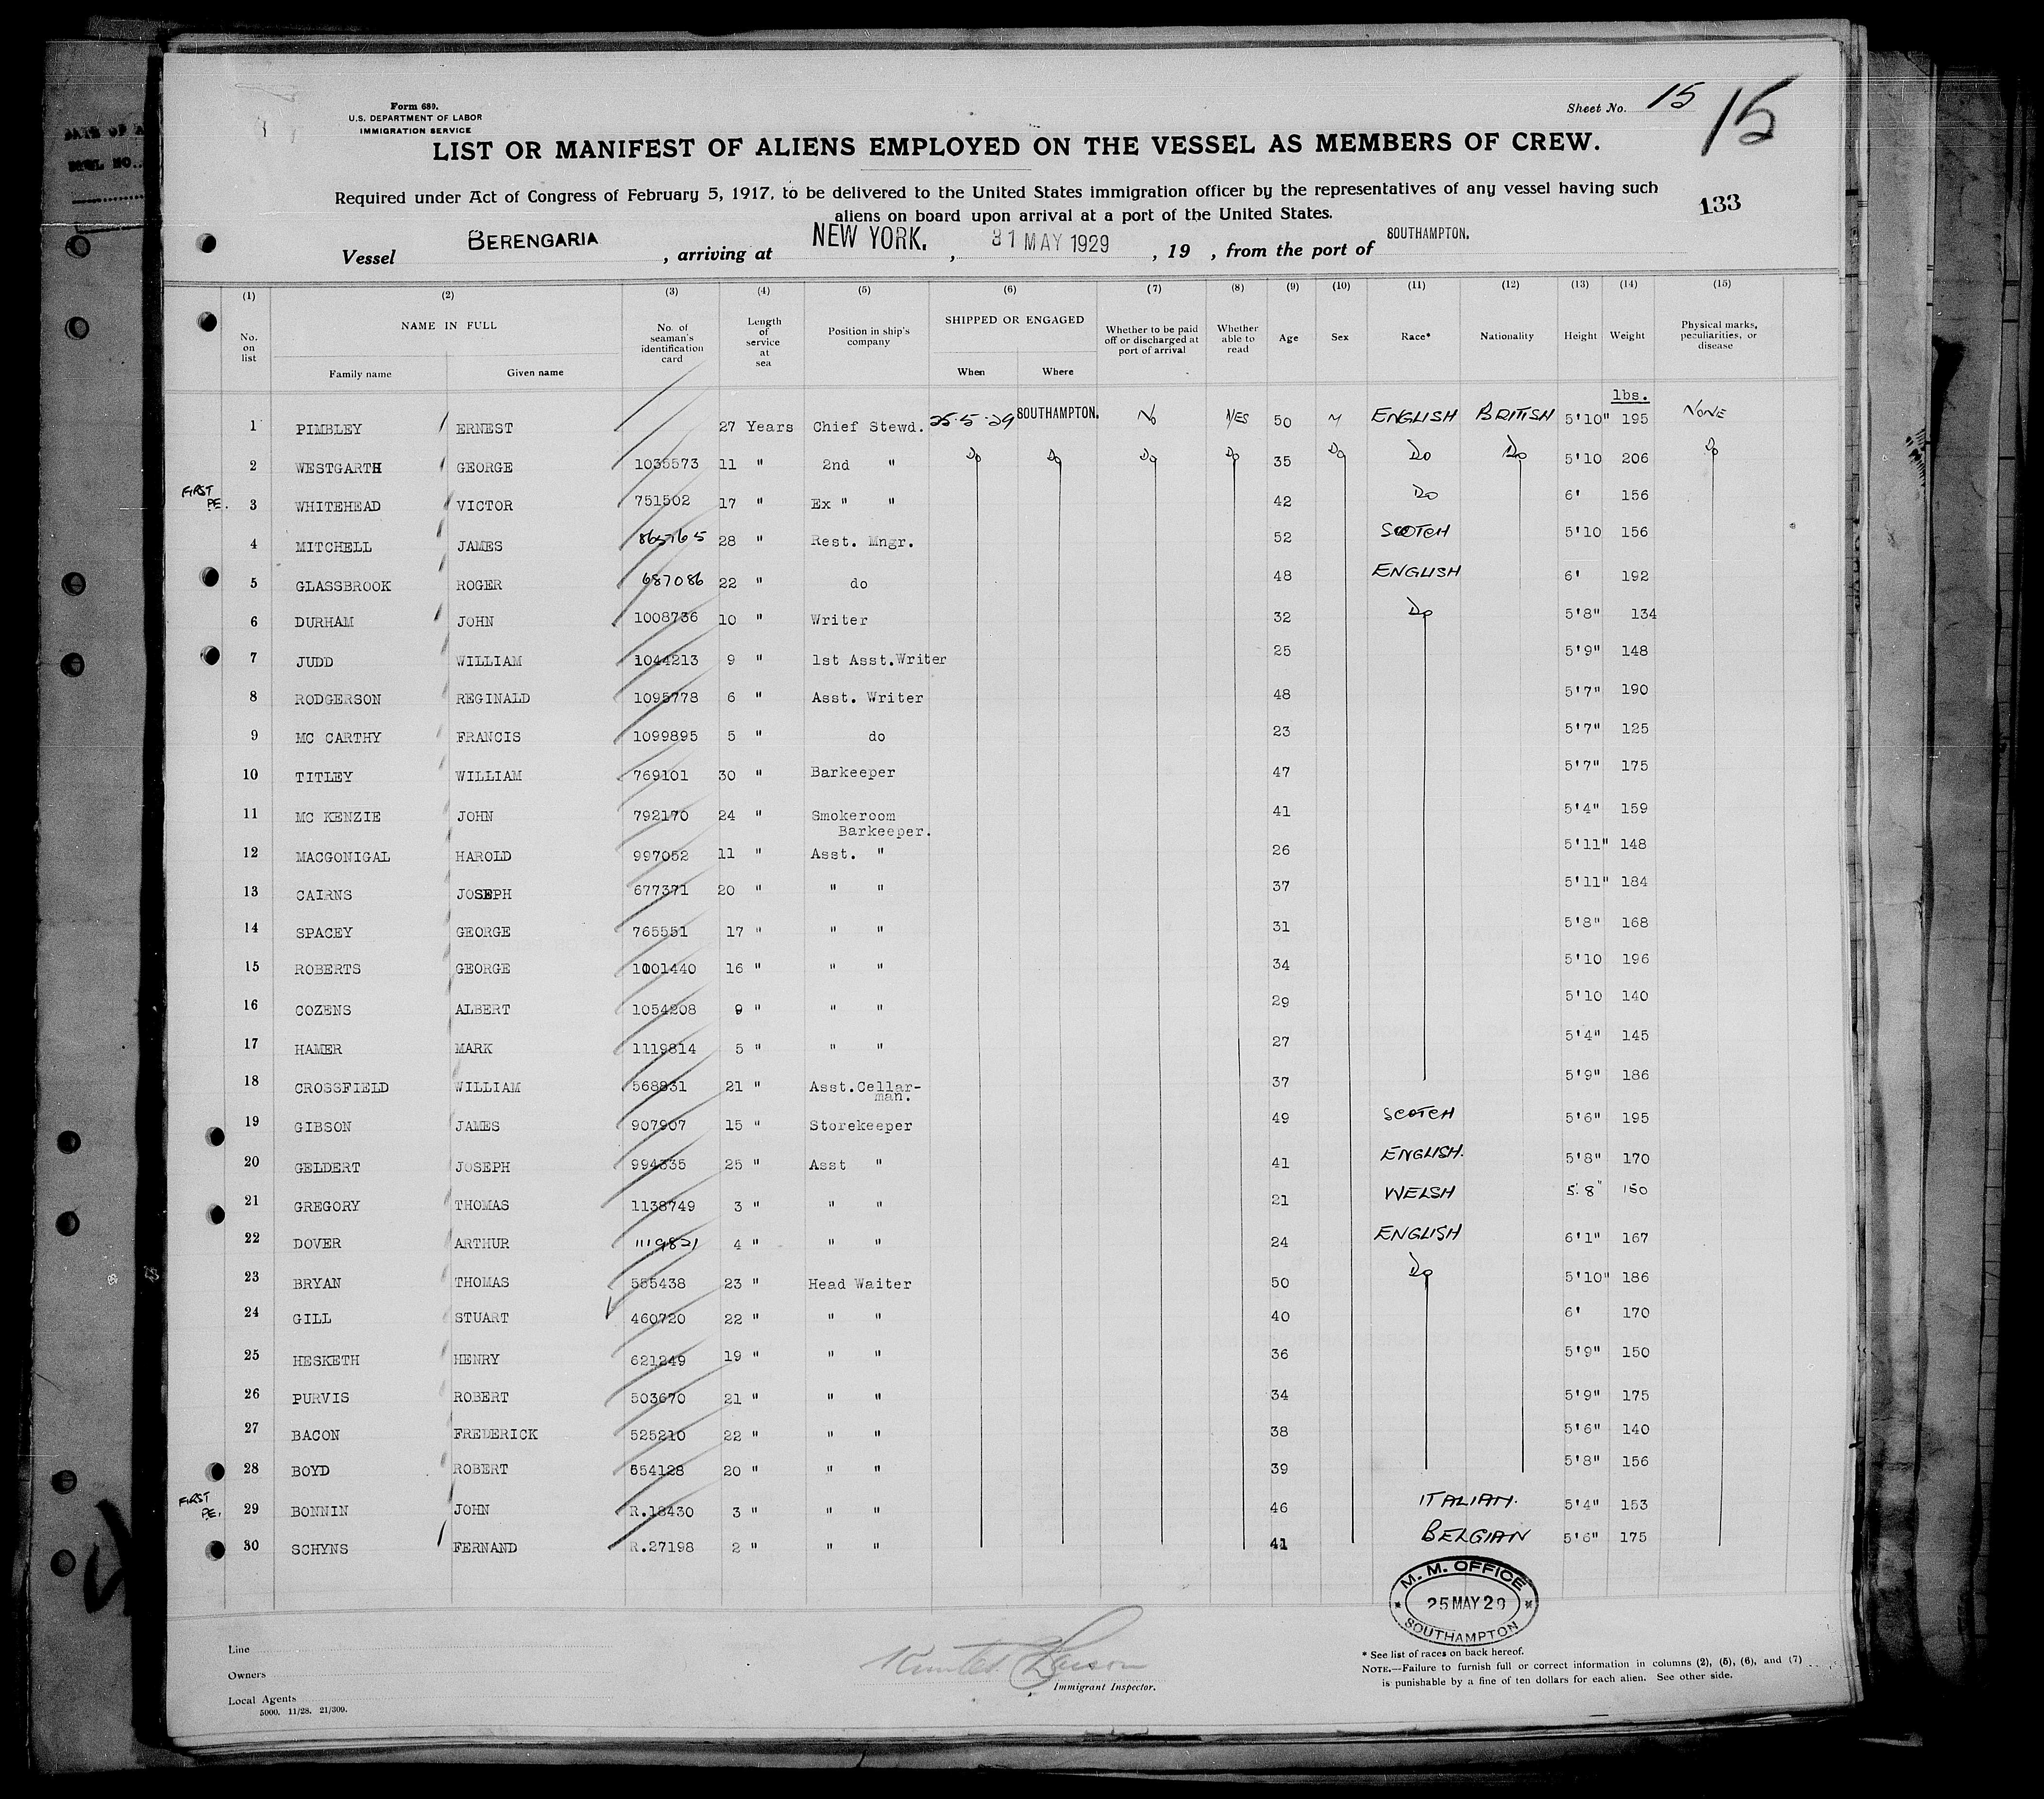 Form 689.
U.S. DEPARTMENT OF LABOR
IMMIGRATION SERVICE
Sheet No. 15
15
LIST OR MANIFEST OF ALIENS EMPLOYED ON THE VESSEL AS MEMBERS OF CREW.
Required under Act of Congress of February 5, 1917, to be delivered to the United States immigration officer by the representatives of any vessel having such
aliens on board upon arrival at a port of the United States.
133
Vessel BERENGARIA , arriving at NEW YORK. , 31 MAY 1929 , 19 , from the port of SOUTHAMPTON.
(1) (2) (3) (4) (5) (6) (7) (8) (9) (10) (11) (12) (13) (14) (15)
No. on list NAME IN FULL Family name Given name No. of seaman's identification card Length of service at sea Position in ship's company SHIPPED OR ENGAGED When Where Whether to be paid off or discharged at port of arrival Whether able to read Age Sex Race* Nationality Height Weight Physical marks, peculiarities, or disease
lbs.
1 PIMBLEY ERNEST 27 Years Chief Stewd. 25·5·29 SOUTHAMPTON. No YES 50 M ENGLISH BRITISH 5'10" 195 NONE
2 WESTGARTH GEORGE 1035573 11 " 2nd " Do Do Do Do 35 Do Do Do 5'10 206 Do
FIRST PE. 3 WHITEHEAD VICTOR 751502 17 " Ex " " 42 Do 6' 156
4 MITCHELL JAMES 865765 28 " Rest. Mngr. 52 SCOTCH 5'10 156
5 GLASSBROOK ROGER 687086 22 " do 48 ENGLISH 6' 192
6 DURHAM JOHN 1008736 10 " Writer 32 Do 5'8" 134
7 JUDD WILLIAM 1044213 9 " 1st Asst.Writer 25 5'9" 148
8 RODGERSON REGINALD 1095778 6 " Asst. Writer 48 5'7" 190
9 MC CARTHY FRANCIS 1099895 5 " do 23 5'7" 125
10 TITLEY WILLIAM 769101 30 " Barkeeper 47 5'7" 175
11 MC KENZIE JOHN 792170 24 " Smokeroom Barkeeper. 41 5'4" 159
12 MACGONIGAL HAROLD 997052 11 " Asst. " 26 5'11" 148
13 CAIRNS JOSEPH 677371 20 " " " 37 5'11" 184
14 SPACEY GEORGE 765551 17 " " " 31 5'8" 168
15 ROBERTS GEORGE 1001440 16 " " " 34 5'10 196
16 COZENS ALBERT 1054208 9 " " " 29 5'10 140
17 HAMER MARK 1119814 5 " " " 27 5'4" 145
18 CROSSFIELD WILLIAM 568831 21 " Asst.Cellar-man. 37 5'9" 186
19 GIBSON JAMES 907907 15 " Storekeeper 49 SCOTCH 5'6" 195
20 GELDERT JOSEPH 994335 25 " Asst " 41 ENGLISH. 5'8" 170
21 GREGORY THOMAS 1138749 3 " " " 21 WELSH 5'8" 150
22 DOVER ARTHUR 1119821 4 " " " 24 ENGLISH 6'1" 167
23 BRYAN THOMAS 555438 23 " Head Waiter 50 Do 5'10" 186
24 GILL STUART 460720 22 " " " 40 6' 170
25 HESKETH HENRY 621249 19 " " " 36 5'9" 150
26 PURVIS ROBERT 503670 21 " " " 34 5'9" 175
27 BACON FREDERICK 525210 22 " " " 38 5'6" 140
28 BOYD ROBERT 554128 20 " " " 39 5'8" 156
FIRST PE. 29 BONNIN JOHN R.18430 3 " " " 46 ITALIAN. 5'4" 153
30 SCHYNS FERNAND R.27198 2 " " " 41 BELGIAN 5'6" 175
M. M. OFFICE
25 MAY 29
SOUTHAMPTON
Line
Owners
Local Agents
5000. 11/28. 21/309.
Immigrant Inspector.
* See list of races on back hereof.
NOTE.—Failure to furnish full or correct information in columns (2), (5), (6), and (7)
is punishable by a fine of ten dollars for each alien. See other side.